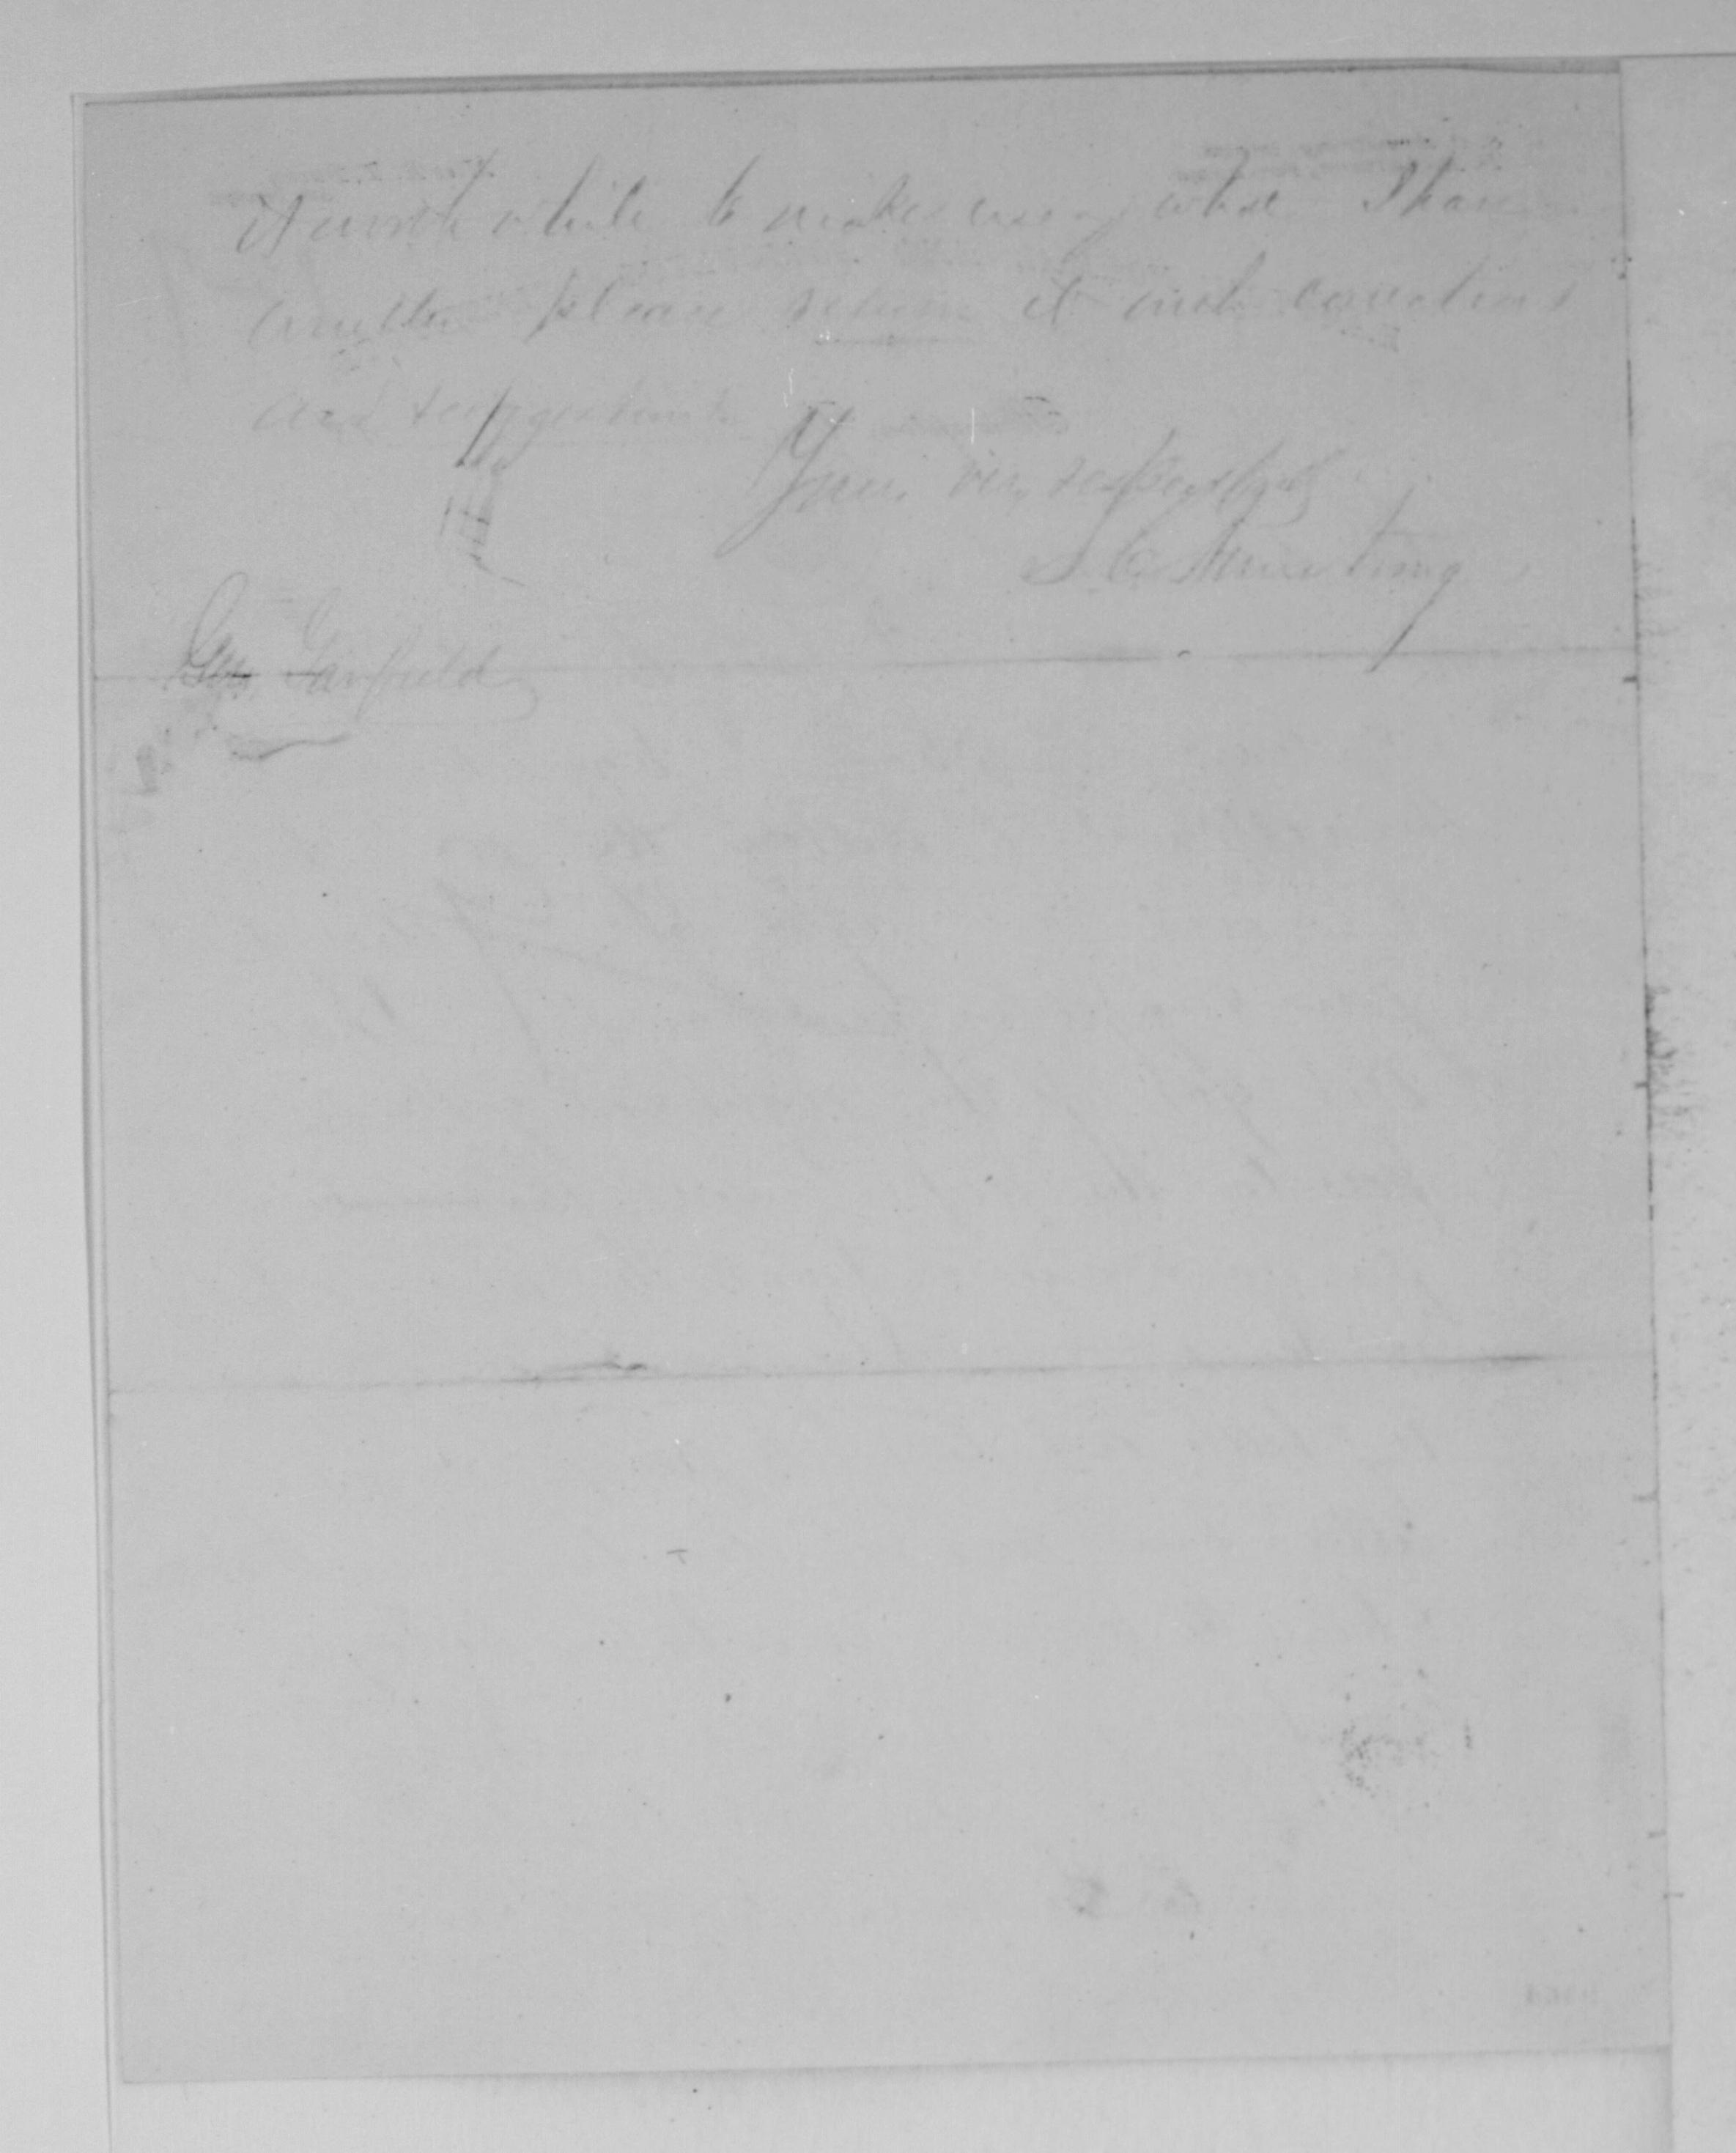 it worth while to make use of what I have
written please return it with corrections
and suggestions
Yours very respectfully
S. C. Armstrong
Gen Garfield